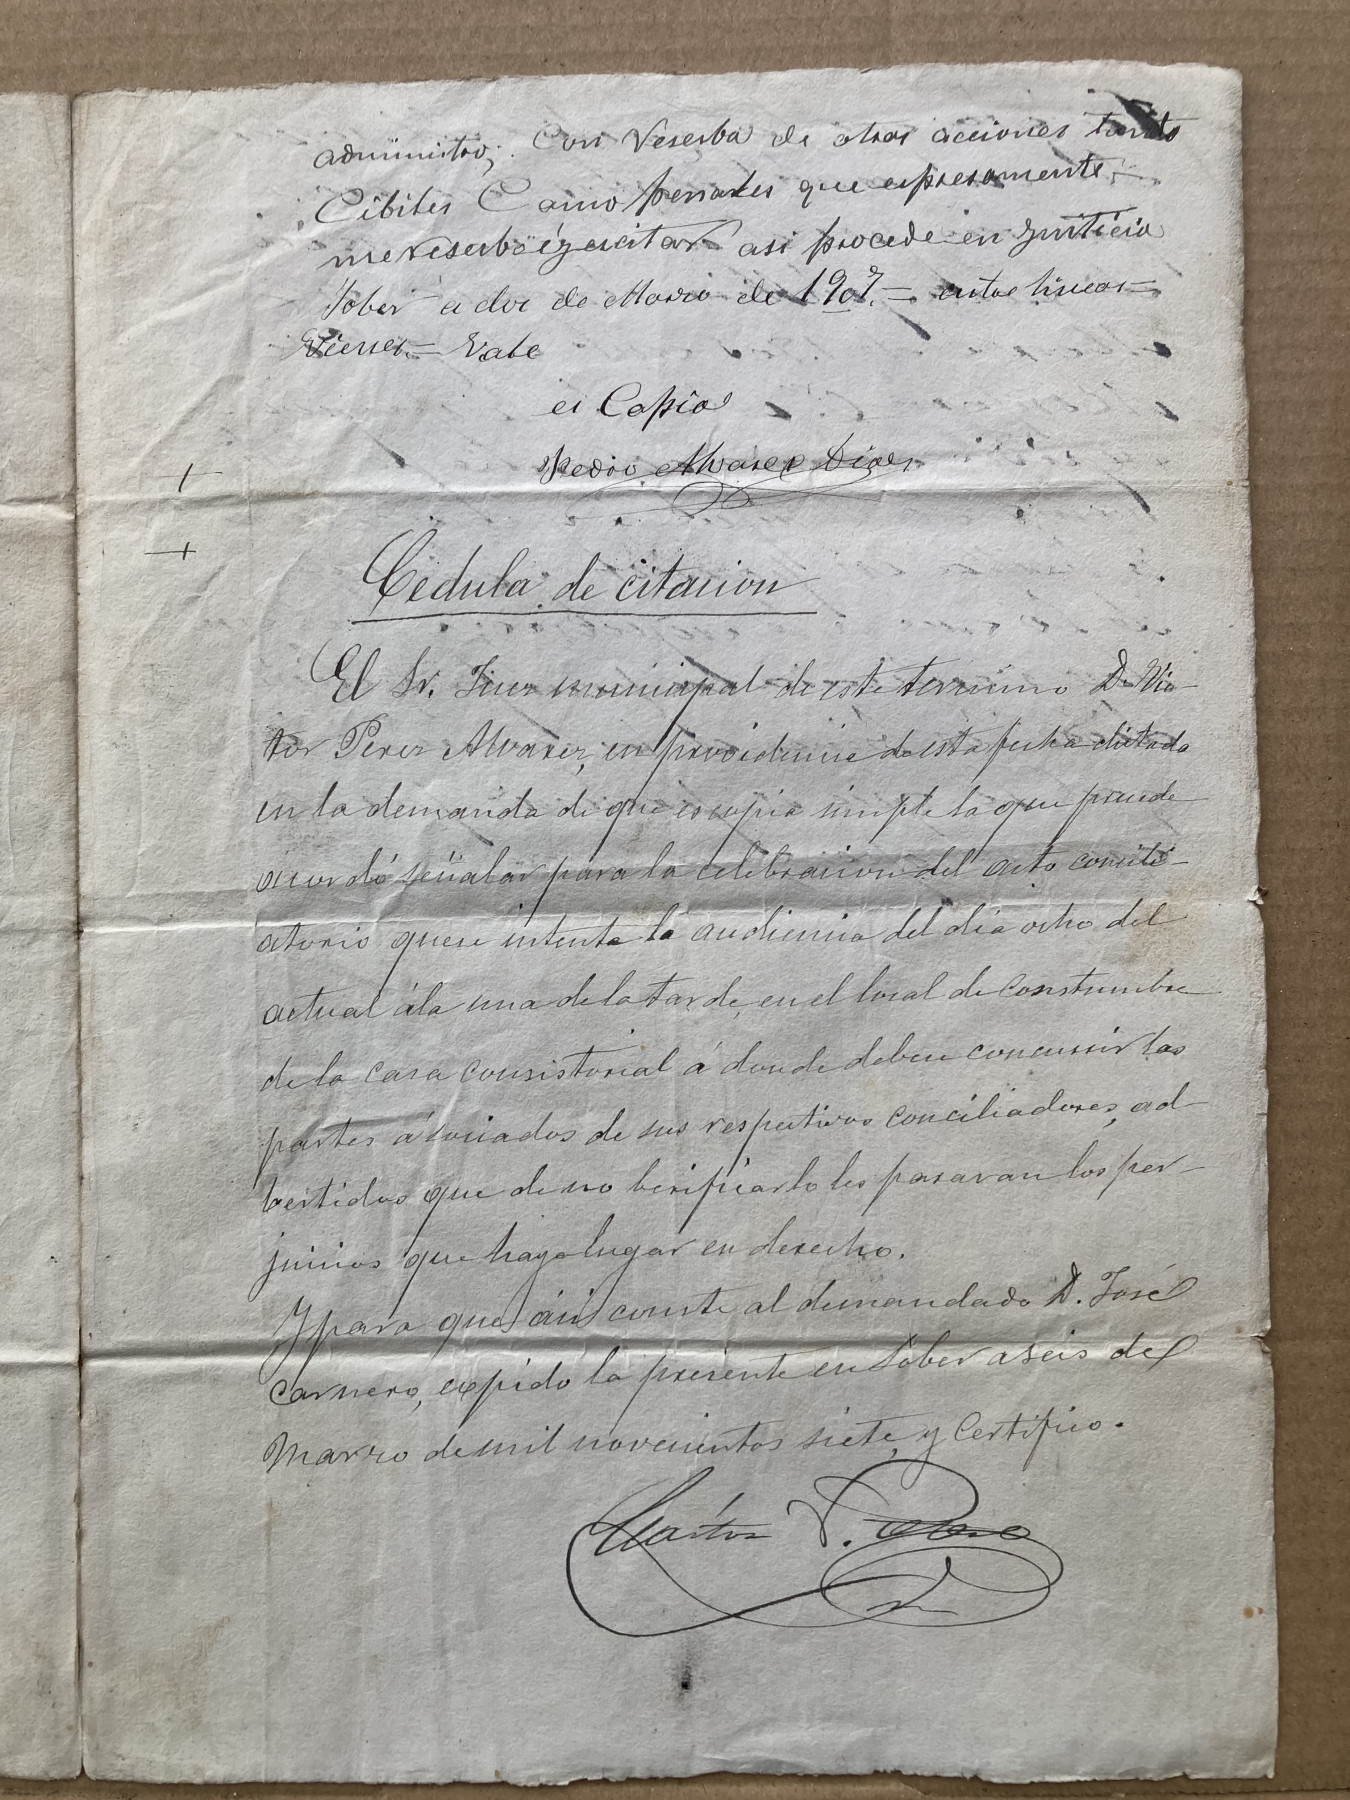 administro; Con Reserba de otras acciones tanto
Cibiles Como penales que espresamente
me reserbo éjercitar asi procede en Justicia
Sober a dos de Marzo de 1907.= entre lineas=
Vienes.= Vale
es Copia
Pedro Alvarez Diaz
Cedula de citacion
El Sr. Juez municipal de este termino D. Vic-
tor Perez Alvarez, en providencia de esta fecha dictada
en la demanda de que es copia simple la que precede
acordó señalar para la celebracion del acto concili-
atorio que se intenta la audiencia del dia ocho del
actual á la una de la tarde, en el local de constumbre
de la casa consistorial á donde deben concurrir las
partes ásociados de sus respectivos conciliadores, ad-
bertidas que de no berificarlo les pararan los per-
juicios que haya lugar en derecho.
Y para que ási conste al demandado D. José
Carnero, expido la presente en Sober a seis de
Marzo de mil novecientos siete y Certifico.